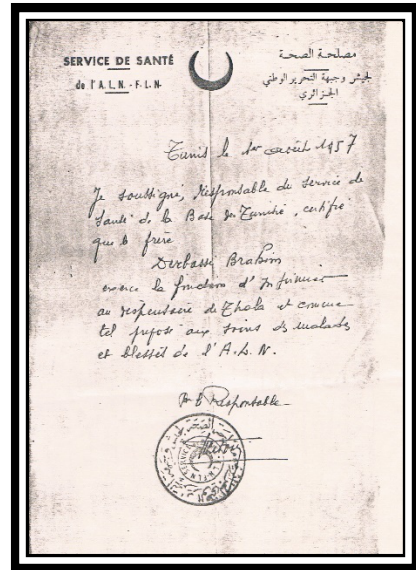 SERVICE DE SANTÉ
de l'A.L.N. - F.L.N.
مصلحة الصحة
لجيش وجبهة التحرير الوطني
الجزائري
Tunis le 1er août 1957
Je soussigné, responsable du service de
Santé de la Base de Tunisie, certifie
que le frère
Derbassi Brahim
exerce la fonction d'Infirmier
au dispensaire de Thala et comme
tel préposé aux soins des malades
et blessés de l'A.L.N.
Responsable